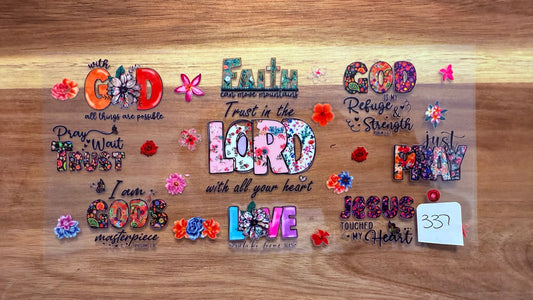 with
GOD
all things are possible
Faith
can move mountains
GOD
IS MY
Refuge &
Strength
Trust in the
LORD
with all your heart
Pray
Wait
TRUST
just
PRAY
I am
GOD'S
masterpiece
LOVE
JESUS
TOUCHED
MY Heart
337